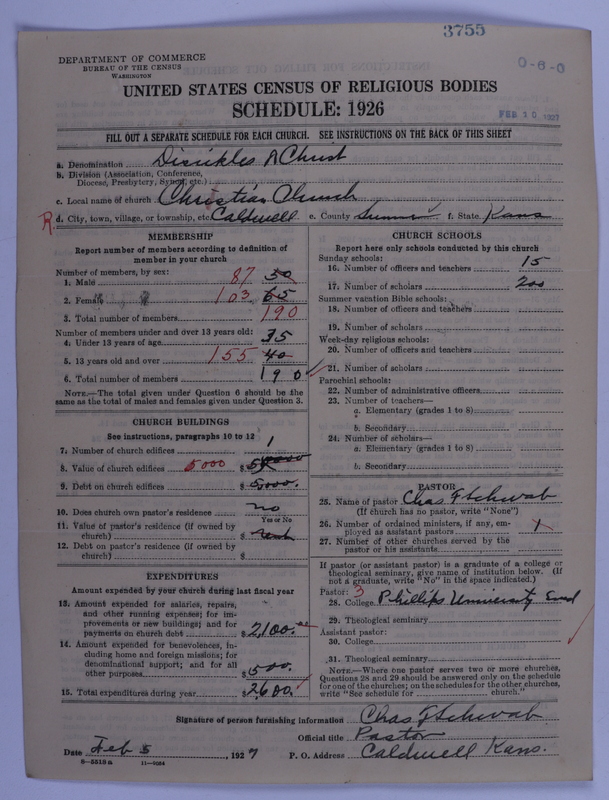 3755
0-6-0
DEPARTMENT OF COMMERCE
BUREAU OF THE CENSUS
WASHINGTON
UNITED STATES CENSUS OF RELIGIOUS BODIES
SCHEDULE: 1926
FEB 10 1927
FILL OUT A SEPARATE SCHEDULE FOR EACH CHURCH. SEE INSTRUCTIONS ON THE BACK OF THIS SHEET
a. Denomination Christ
b. Division (Association, Conference,
Diocese, Presbytery, Synod, etc.)
c. Local name of church Christian Church
R. d. City, town, village, or township, etc. Caldwell e. County Sumner f. State Kans
MEMBERSHIP
Report number of members according to definition of
member in your church
Number of members, by sex:
1. Male 87 50
2. Female 103 65
3. Total number of members 190
Number of members under and over 13 years old:
4. Under 13 years of age 35
5. 13 years old and over 155 40
6. Total number of members 190
NOTE.—The total given under Question 6 should be the
same as the total of males and females given under Question 3.
CHURCH BUILDINGS
See instructions, paragraphs 10 to 12
7. Number of church edifices 1
8. Value of church edifices 5000 $
9. Debt on church edifices $ 5,000.
10. Does church own pastor's residence no
Yes or No
11. Value of pastor's residence (if owned by
church) $
12. Debt on pastor's residence (if owned by
church) $
EXPENDITURES
Amount expended by your church during last fiscal year
13. Amount expended for salaries, repairs,
and other running expenses; for im-
provements or new buildings; and for
payments on church debt $ 2,100.
14. Amount expended for benevolences, in-
cluding home and foreign missions; for
denominational support; and for all
other purposes $ 500.
15. Total expenditures during year $ 2,600.
CHURCH SCHOOLS
Report here only schools conducted by this church
Sunday schools:
16. Number of officers and teachers 15
17. Number of scholars 200
Summer vacation Bible schools:
18. Number of officers and teachers
19. Number of scholars
Week-day religious schools:
20. Number of officers and teachers
21. Number of scholars
Parochial schools:
22. Number of administrative officers
23. Number of teachers—
a. Elementary (grades 1 to 8)
b. Secondary
24. Number of scholars—
a. Elementary (grades 1 to 8)
b. Secondary
PASTOR
25. Name of pastor Chas F Schwab
(If church has no pastor, write "None")
26. Number of ordained ministers, if any, em-
ployed as assistant pastors
27. Number of other churches served by the
pastor or his assistants
If pastor (or assistant pastor) is a graduate of a college or
theological seminary, give name of institution below. (If
not a graduate, write "No" in the space indicated.)
Pastor: 3
28. College Phillips University Enid
29. Theological seminary
Assistant pastor:
30. College
31. Theological seminary
NOTE.—Where one pastor serves two or more churches,
Questions 28 and 29 should be answered only on the schedule
for one of the churches; on the schedules for the other churches,
write "See schedule for church."
Signature of person furnishing information Chas F Schwab
Official title Pastor
Date Feb 5, 1927 P. O. Address Caldwell Kans.
8-5518a 11-9034